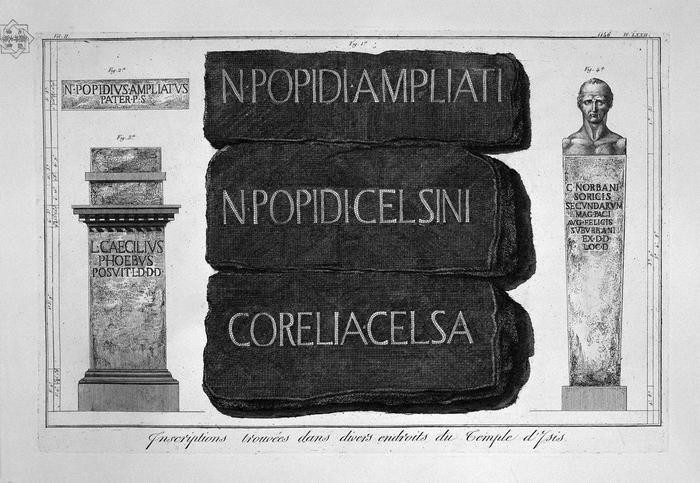 Vol. II.
1146 Pl. LXXII.
Fig. 1ª
N·POPIDI·AMPLIATI
N·POPIDI·CELSINI
CORELIA·CELSA
Fig. 2ª
N·POPIDIVS·AMPLIATVS
PATER·P·S
Fig. 3ª
L·CAECILIVS
PHOEBVS
POSVIT·L·D·D·D
Fig. 4ª
C·NORBANI
SORICIS
SECVNDARVM
MAG·PAGI
AVG·FELICIS
SVBVRBANI
EX·D·D
LOC·D
Inscriptions trouvées dans divers endroits du Temple d'Isis.